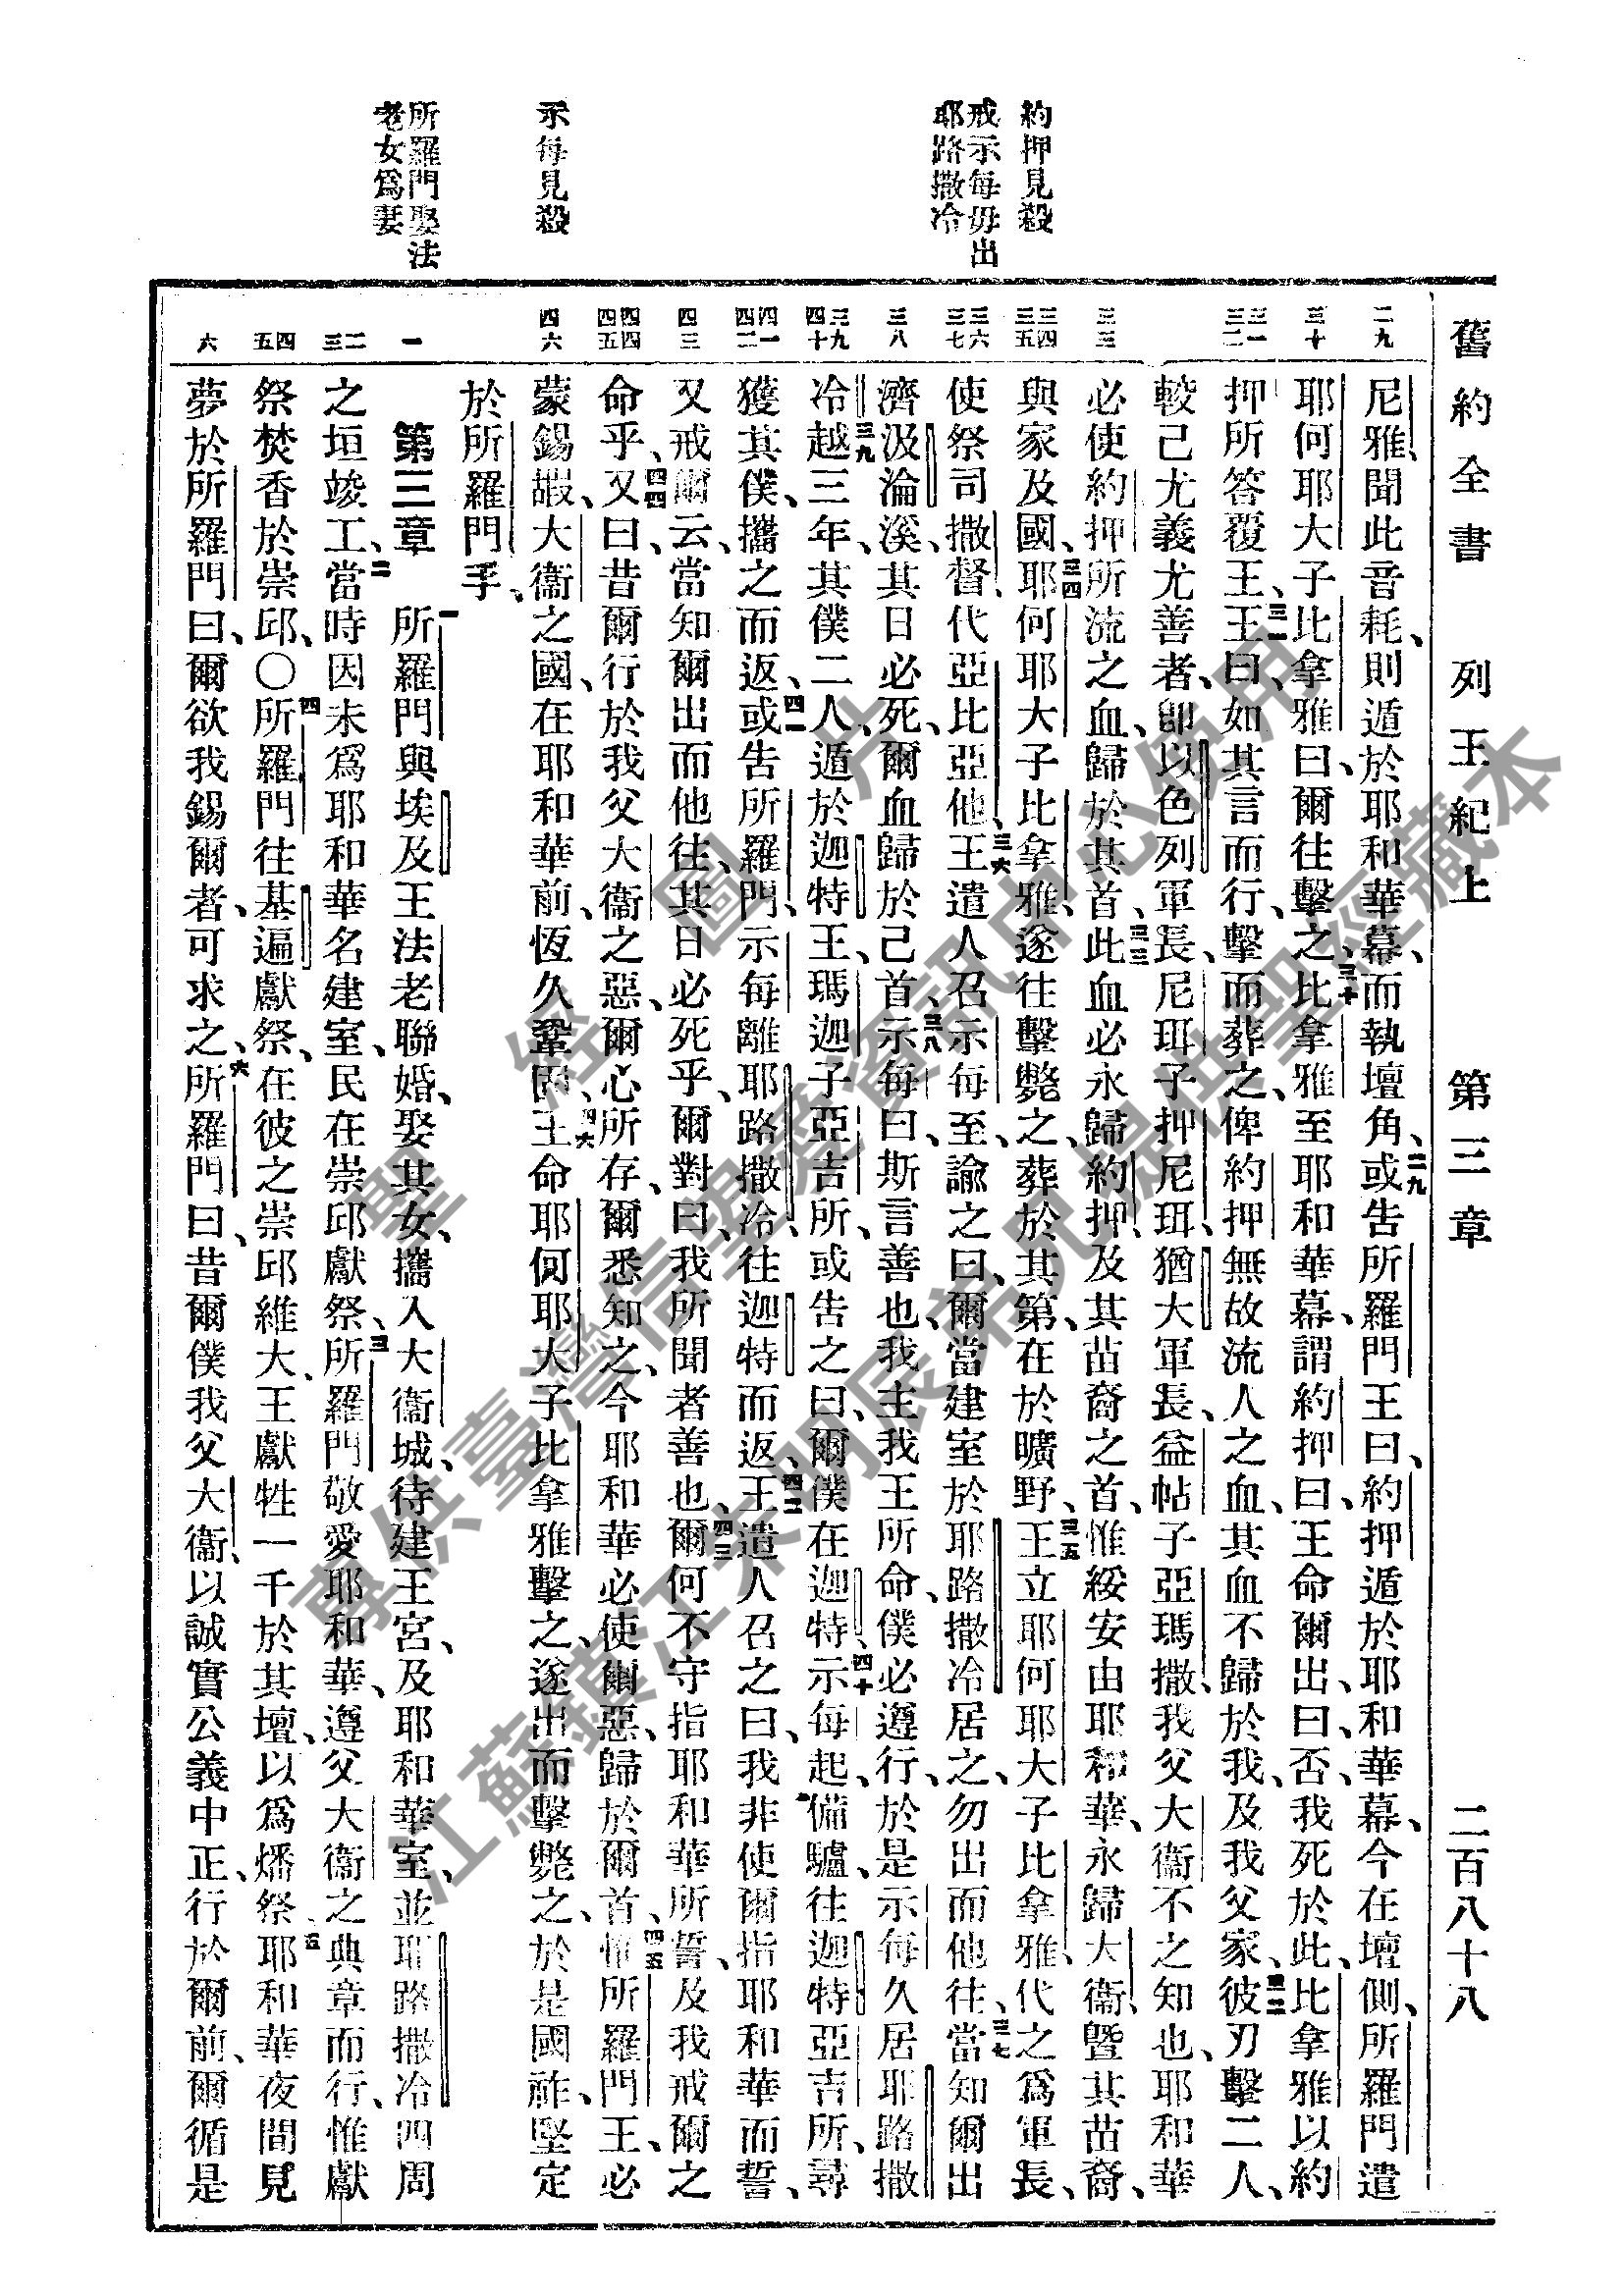 舊約全書 列王紀上 第三章 二百八十八
約押見殺
戒示每毋出
耶路撒冷
示每見殺
所羅門娶法
老女爲妻
二九
三十
三一 三二
三三
三四 三五
三六 三七
三八
三九 四十
四一 四二
四三
四四 四五
四六
一
二 三
四 五
六
尼雅、聞此音耗、則遁於耶和華幕、而執壇角、二九或告所羅門王曰、約押遁於耶和華幕、今在壇側、所羅門遣
耶何耶大子比拿雅曰、爾往擊之、三十比拿雅至耶和華幕、謂約押曰、王命爾出、曰、否、我死於此、比拿雅以約
押所答覆王、三一王曰、如其言而行、擊而葬之、俾約押無故流人之血、其血不歸於我、及我父家、三二彼刃擊二人、
較己尤義尤善者、卽以色列軍長、尼珥子押尼珥、猶大軍長、益帖子亞瑪撒、我父大衞不之知也、耶和華
必使約押所流之血、歸於其首、三三此血必永歸約押、及其苗裔之首、惟綏安由耶和華、永歸大衞、曁其苗裔、
與家及國、三四耶何耶大子比拿雅、遂往擊斃之、葬於其第、在於曠野、三五王立耶何耶大子比拿雅、代之爲軍長、
使祭司撒督、代亞比亞他、三六王遣人召示每至、諭之曰、爾當建室於耶路撒冷居之、勿出而他往、三七當知爾出
濟汲淪溪、其日必死、爾血歸於己首、三八示每曰、斯言善也、我主我王所命、僕必遵行、於是示每久居耶路撒
冷、三九越三年、其僕二人、遁於迦特王、瑪迦子亞吉所、或告之曰、爾僕在迦特、四十示每起、備驢、往迦特亞吉所、尋
獲其僕、攜之而返、四一或告所羅門、示每離耶路撒冷、往迦特而返、四二王遣人召之曰、我非使爾指耶和華而誓、
又戒爾云、當知爾出而他往、其日必死乎、爾對曰、我所聞者善也、四三爾何不守指耶和華所誓、及我戒爾之
命乎、四四又曰、昔爾行於我父大衞之惡、爾心所存、爾悉知之、今耶和華必使爾惡、歸於爾首、四五惟所羅門王、必
蒙錫嘏、大衞之國、在耶和華前、恆久鞏固、四六王命耶何耶大子比拿雅擊之、遂出而擊斃之、於是國祚、堅定
於所羅門手、
第三章 一所羅門與埃及王法老聯婚、娶其女、攜入大衞城、待建王宮、及耶和華室、並耶路撒冷四周
之垣竣工、二當時因未爲耶和華名建室、民在崇邱獻祭、三所羅門敬愛耶和華、遵父大衞之典章而行、惟獻
祭焚香於崇邱、○四所羅門往基遍獻祭、在彼之崇邱維大、王獻牲一千於其壇、以爲燔祭、五耶和華夜間見
夢於所羅門曰、爾欲我錫爾者、可求之、六所羅門曰、昔爾僕我父大衞、以誠實公義中正、行於爾前、爾循是
聖經圖片
專供臺灣信望愛資訊中心使用
江蘇鎮江朱明辰弟兄提供聖經藏本